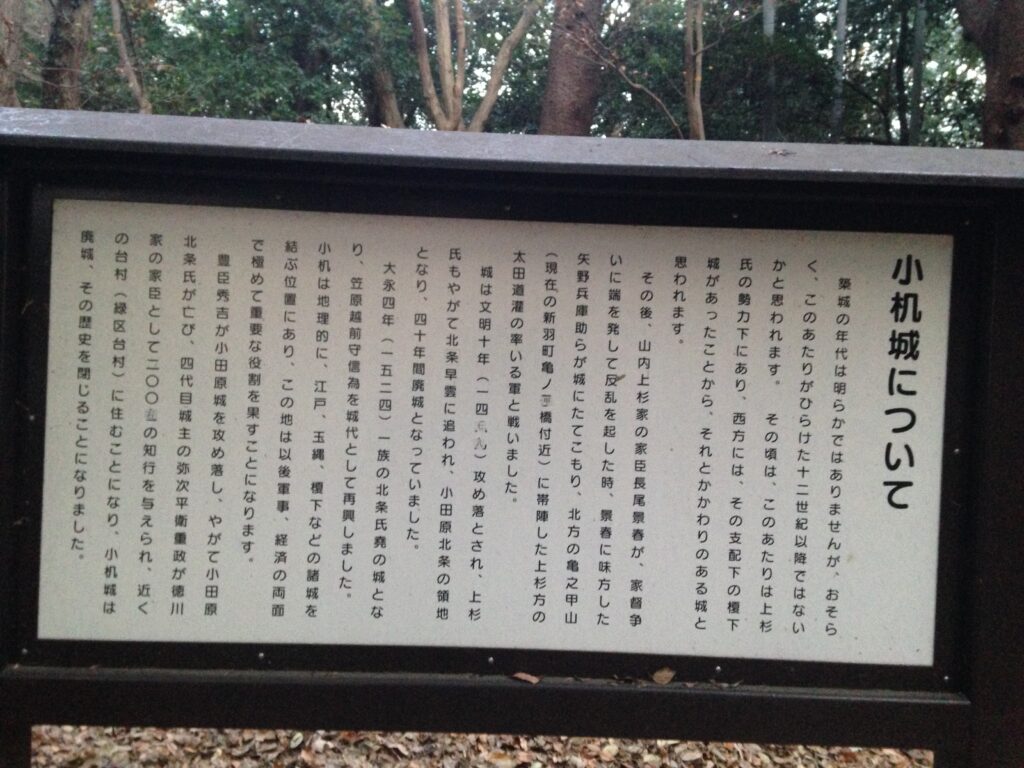 小机城について
築城の年代は明らかではありませんが、おそら
く、このあたりがひらけた十二世紀以降ではない
かと思われます。　その頃は、このあたりは上杉
氏の勢力下にあり、西方には、その支配下の榎下
城があったことから、それとかかわりのある城と
思われます。
その後、山内上杉家の家臣長尾景春が、家督争
いに端を発して反乱を起した時、景春に味方した
矢野兵庫助らが城にたてこもり、北方の亀之甲山
（現在の新羽町亀ノ甲橋付近）に帯陣した上杉方の
太田道灌の率いる軍と戦いました。
城は文明十年（一四）攻め落とされ、上杉
氏もやがて北条早雲に追われ、小田原北条の領地
となり、四十年間廃城となっていました。
大永四年（一五二四）一族の北条氏堯の城とな
り、笠原越前守信為を城代として再興しました。
小机は地理的に、江戸、玉縄、榎下などの諸城を
結ぶ位置にあり、この地は以後軍事、経済の両面
で極めて重要な役割を果すことになります。
豊臣秀吉が小田原城を攻め落し、やがて小田原
北条氏が亡び、四代目城主の弥次平衛重政が徳川
家の家臣として二〇〇の知行を与えられ、近く
の台村（緑区台村）に住むことになり、小机城は
廃城、その歴史を閉じることになりました。